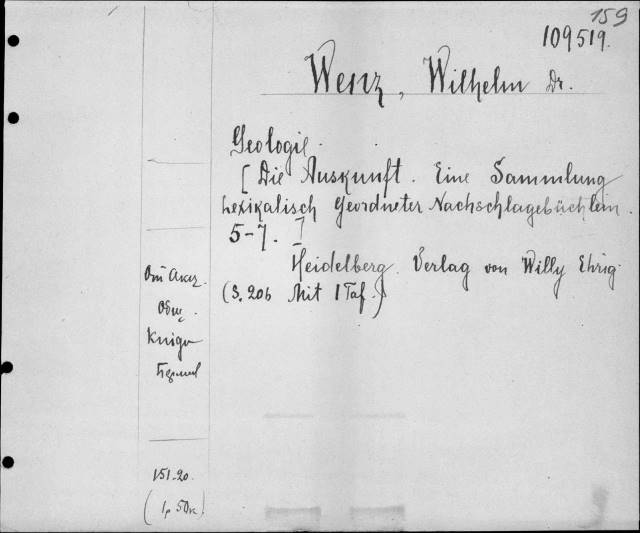 159
109519.
Wenz, Wilhelm Dr.
Geologie.
[Die Auskunft. Eine Sammlung
Lexikalisch Geordneter Nachschlagebüchlein.
5-7. ]
Heidelberg. Verlag von Willy Ehrig.
(S. 206 Mit 1 Taf.)
От Акц.
Общ.
Книга
151-20.
(1р 50к)